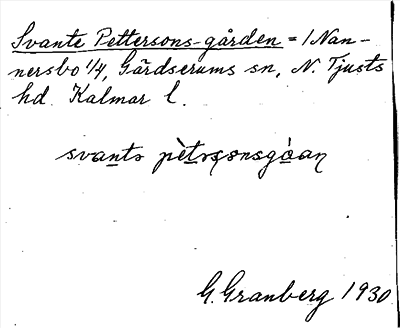 Svante Pettersons-gården = / Nan-
nersbo 1/4, Gärdserums sn, N. Tjusts
hd. Kalmar l.
svantə pètərsonsgåan
G. Granberg 1930